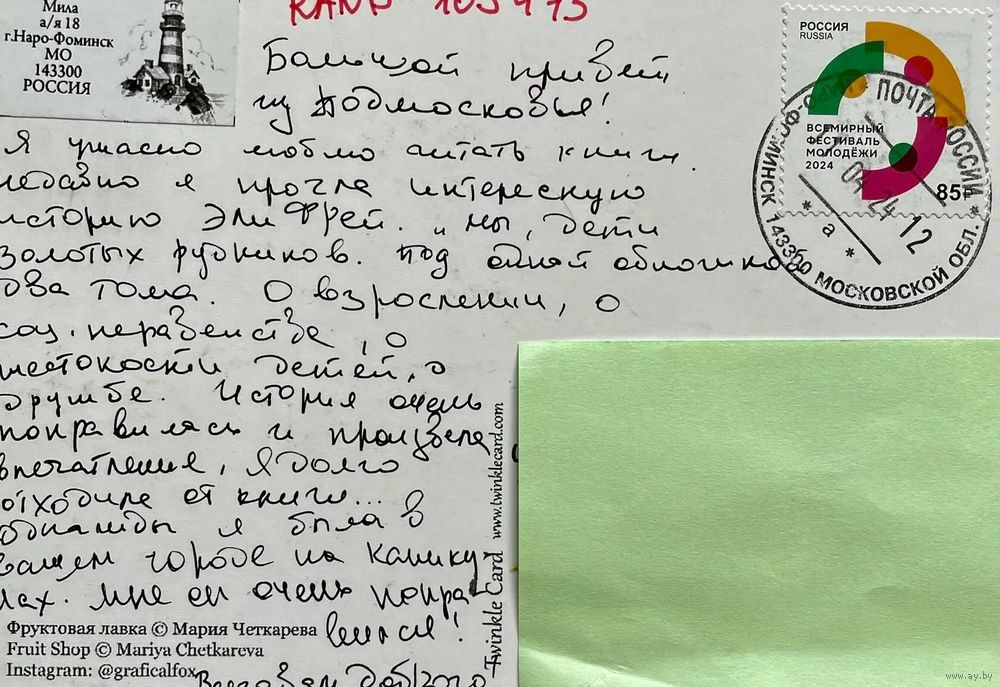 Мила
а/я 18
г.Наро-Фоминск
МО
143300
РОССИЯ
Большой привет
из Подмосковья!
Я ужасно люблю читать книги
недавно я прочла интересную
историю Эли Фрей. „Мы, дети
золотых рудников. Под одной обложкой
два тома. О взрослении, о
соц. неравенстве, о
жестокости детей, о
дружбе. История очень
понравилась и произвела
впечатление, я долго
отходила от книги...
однажды я была в
вашем городе на канику
лах. Мне он очень понра
вился!
Всего Вам доброго
Фруктовая лавка © Мария Четкарева
Fruit Shop © Mariya Chetkareva
Instagram: @graficalfox
Twinkle Card www.twinklecard.com
РОССИЯ
RUSSIA
ВСЕМИРНЫЙ
ФЕСТИВАЛЬ
МОЛОДЁЖИ
2024
85₽
ПОЧТА РОССИИ
МИНСК 143300 МОСКОВСКОЙ ОБЛ.
04 24 12
* а *
www.ay.by